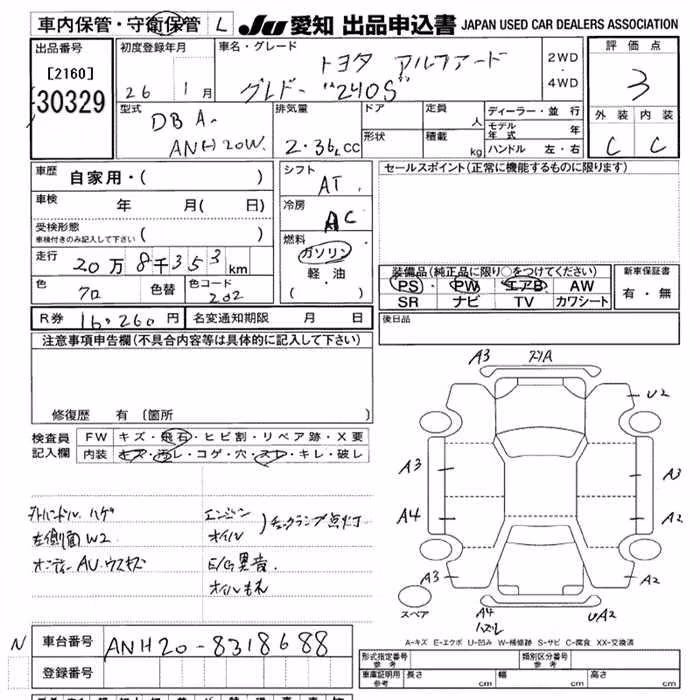 車内保管・守衛保管 L JU 愛知 出品申込書 JAPAN USED CAR DEALERS ASSOCIATION
出品番号 初度登録年月 車名・グレード 評価点
[2160] 26 1月 トヨタ アルファード 2WD
30329 グレード "240S" 4WD 3
型式 排気量 ドア 定員 人 ディーラー・並行 外装 内装
DBA- モデル年式 年
ANH20W 2.36L cc 形状 積載 kg ハンドル 左・右 C C
車歴 自家用・( ) シフト AT セールスポイント(正常に機能するものに限ります)
車検 年 月( 日) 冷房 AC
受検形態 ( )
車検付きのみ記入して下さい
燃料 ガソリン
走行 20万8千353km 軽・油
( )
装備品(純正品に限り○をつけてください) 新車保証書
色 クロ 色替 色コード 202 PS PW エアB AW 有・無
SR ナビ TV カワシート
R券 16,260円 名変通知期限 月 日 後日品
注意事項申告欄(不具合内容等は具体的に記入して下さい)
修復歴 有(箇所 )
検査員 FW キズ・飛石・ヒビ割・リペア跡・X要
記入欄 内装 キズ・汚レ・コゲ・穴・スレ・キレ・破レ
A3 スリA
U2
A3 A3
A4 A2
A3 A2
スペア A4 UA2
ハズレ
ハンドル ハゲ エンジン
チェックランプ点灯
左側面W2 オイル
AU.ウスキズ E/G異音
オイルもれ
A-キズ E-エクボ U-凹み W-補修跡 S-サビ C-腐食 XX-交換済
N 車台番号 ANH20-8318688
登録番号
形式指定番号 参考 類別区分番号 参考
車庫証明用 参考 長さ cm 幅 cm 高さ cm